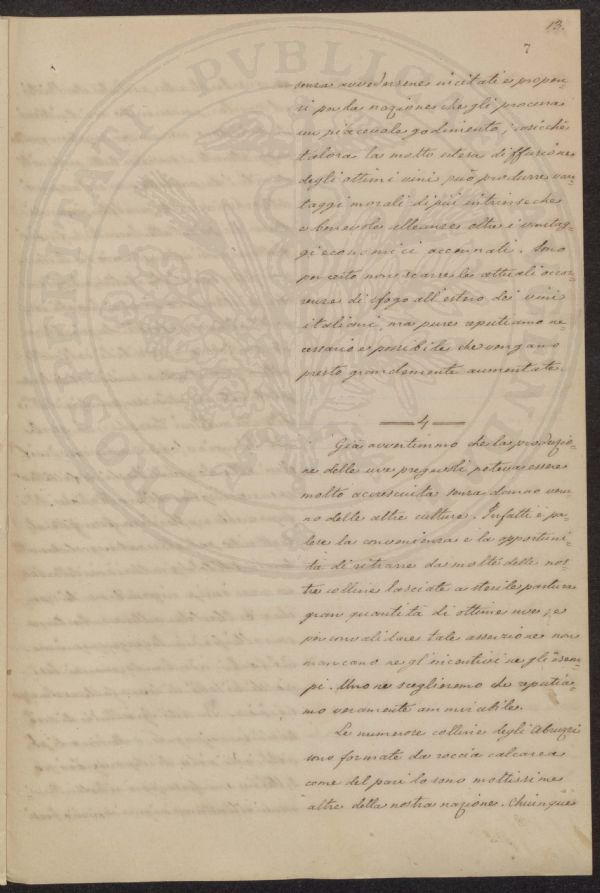 13.
7
senza avvedersene incitati e propen-
si per la nazione che gli procura
un piacevole godimento; cosicchè
talora la molto estesa diffusione
degli ottimi vini può produrre van-
taggi morali di più intrinseche
e benevole alleanze oltre i vantag-
gi economici accennati. Sono
per certo non scarse le attuali occor-
renze di sfogo all'estero dei vini
italiani, ma pure reputiamo ne-
cessario e possibile che vengano
presto grandemente aumentate.
4
Già avvertimmo che la produzio-
ne delle uve pregevoli poteva essere
molto accresciuta senza danno veru-
no delle altre culture. Infatti è pa-
lese la convenienza e la opportuni-
tà di ritrarre da molte delle nos-
tre colline lasciate a sterile pastura
gran quantità di ottime uve; e
per convalidare tale asserzione non
mancano nè gl'incentivi nè gli esem-
pi. Uno ne sceglieremo che reputia-
mo veramente ammirabile.
Le numerose colline degli Abruzzi
sono formate da roccia calcarea
come del pari lo sono moltissime
altre della nostra nazione. Chiunque
PROSPERITATI PVBLICAE